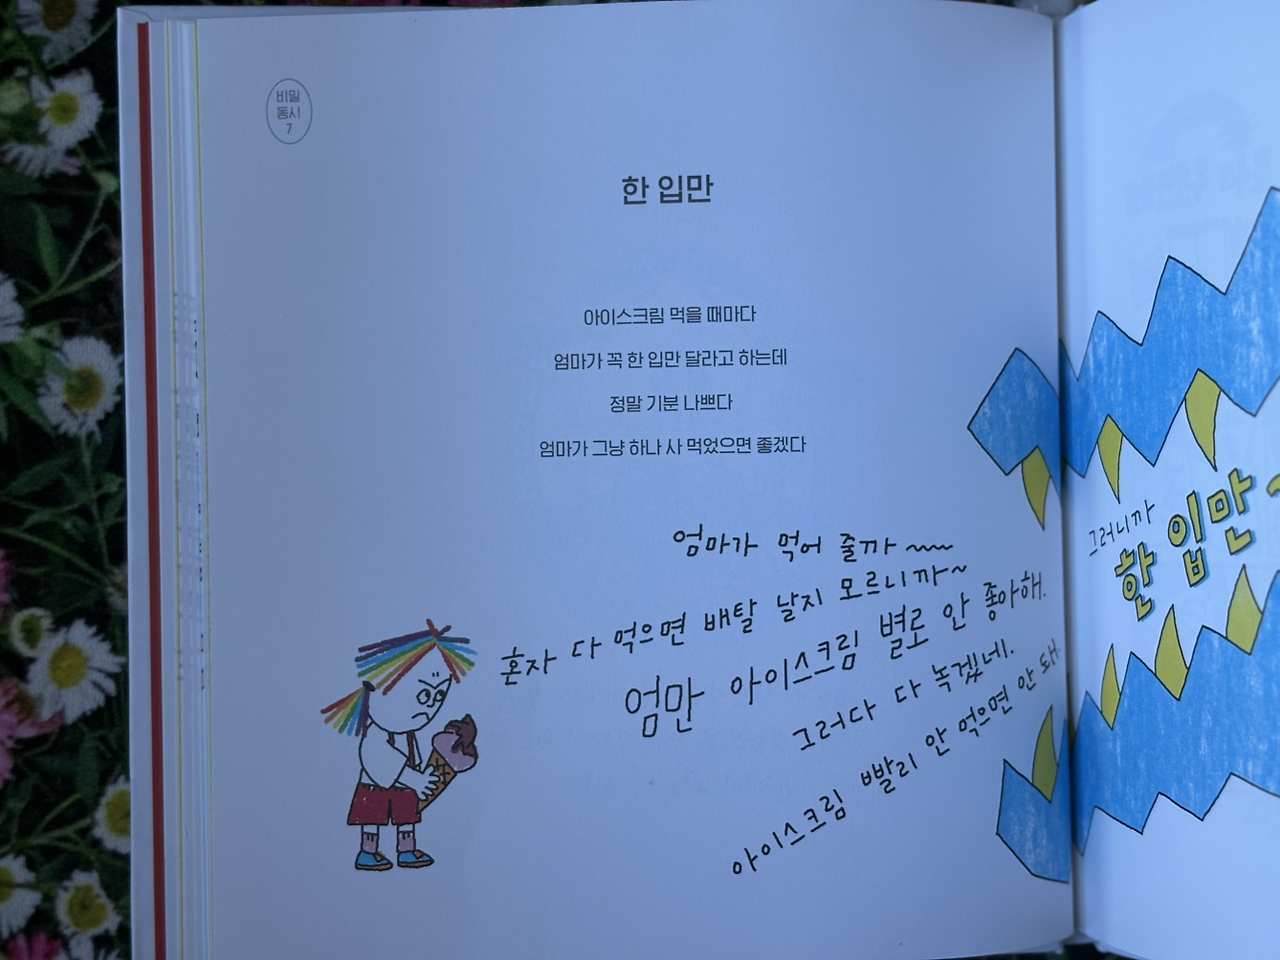 비밀
동시
7
한 입만
아이스크림 먹을 때마다
엄마가 꼭 한 입만 달라고 하는데
정말 기분 나쁘다
엄마가 그냥 하나 사 먹었으면 좋겠다
엄마가 먹어 줄까~~~
혼자 다 먹으면 배탈 날지 모르니까~
엄만 아이스크림 별로 안 좋아해.
그러다 다 녹겠네.
아이스크림 빨리 안 먹으면 안 돼.
그러니까
한 입만~